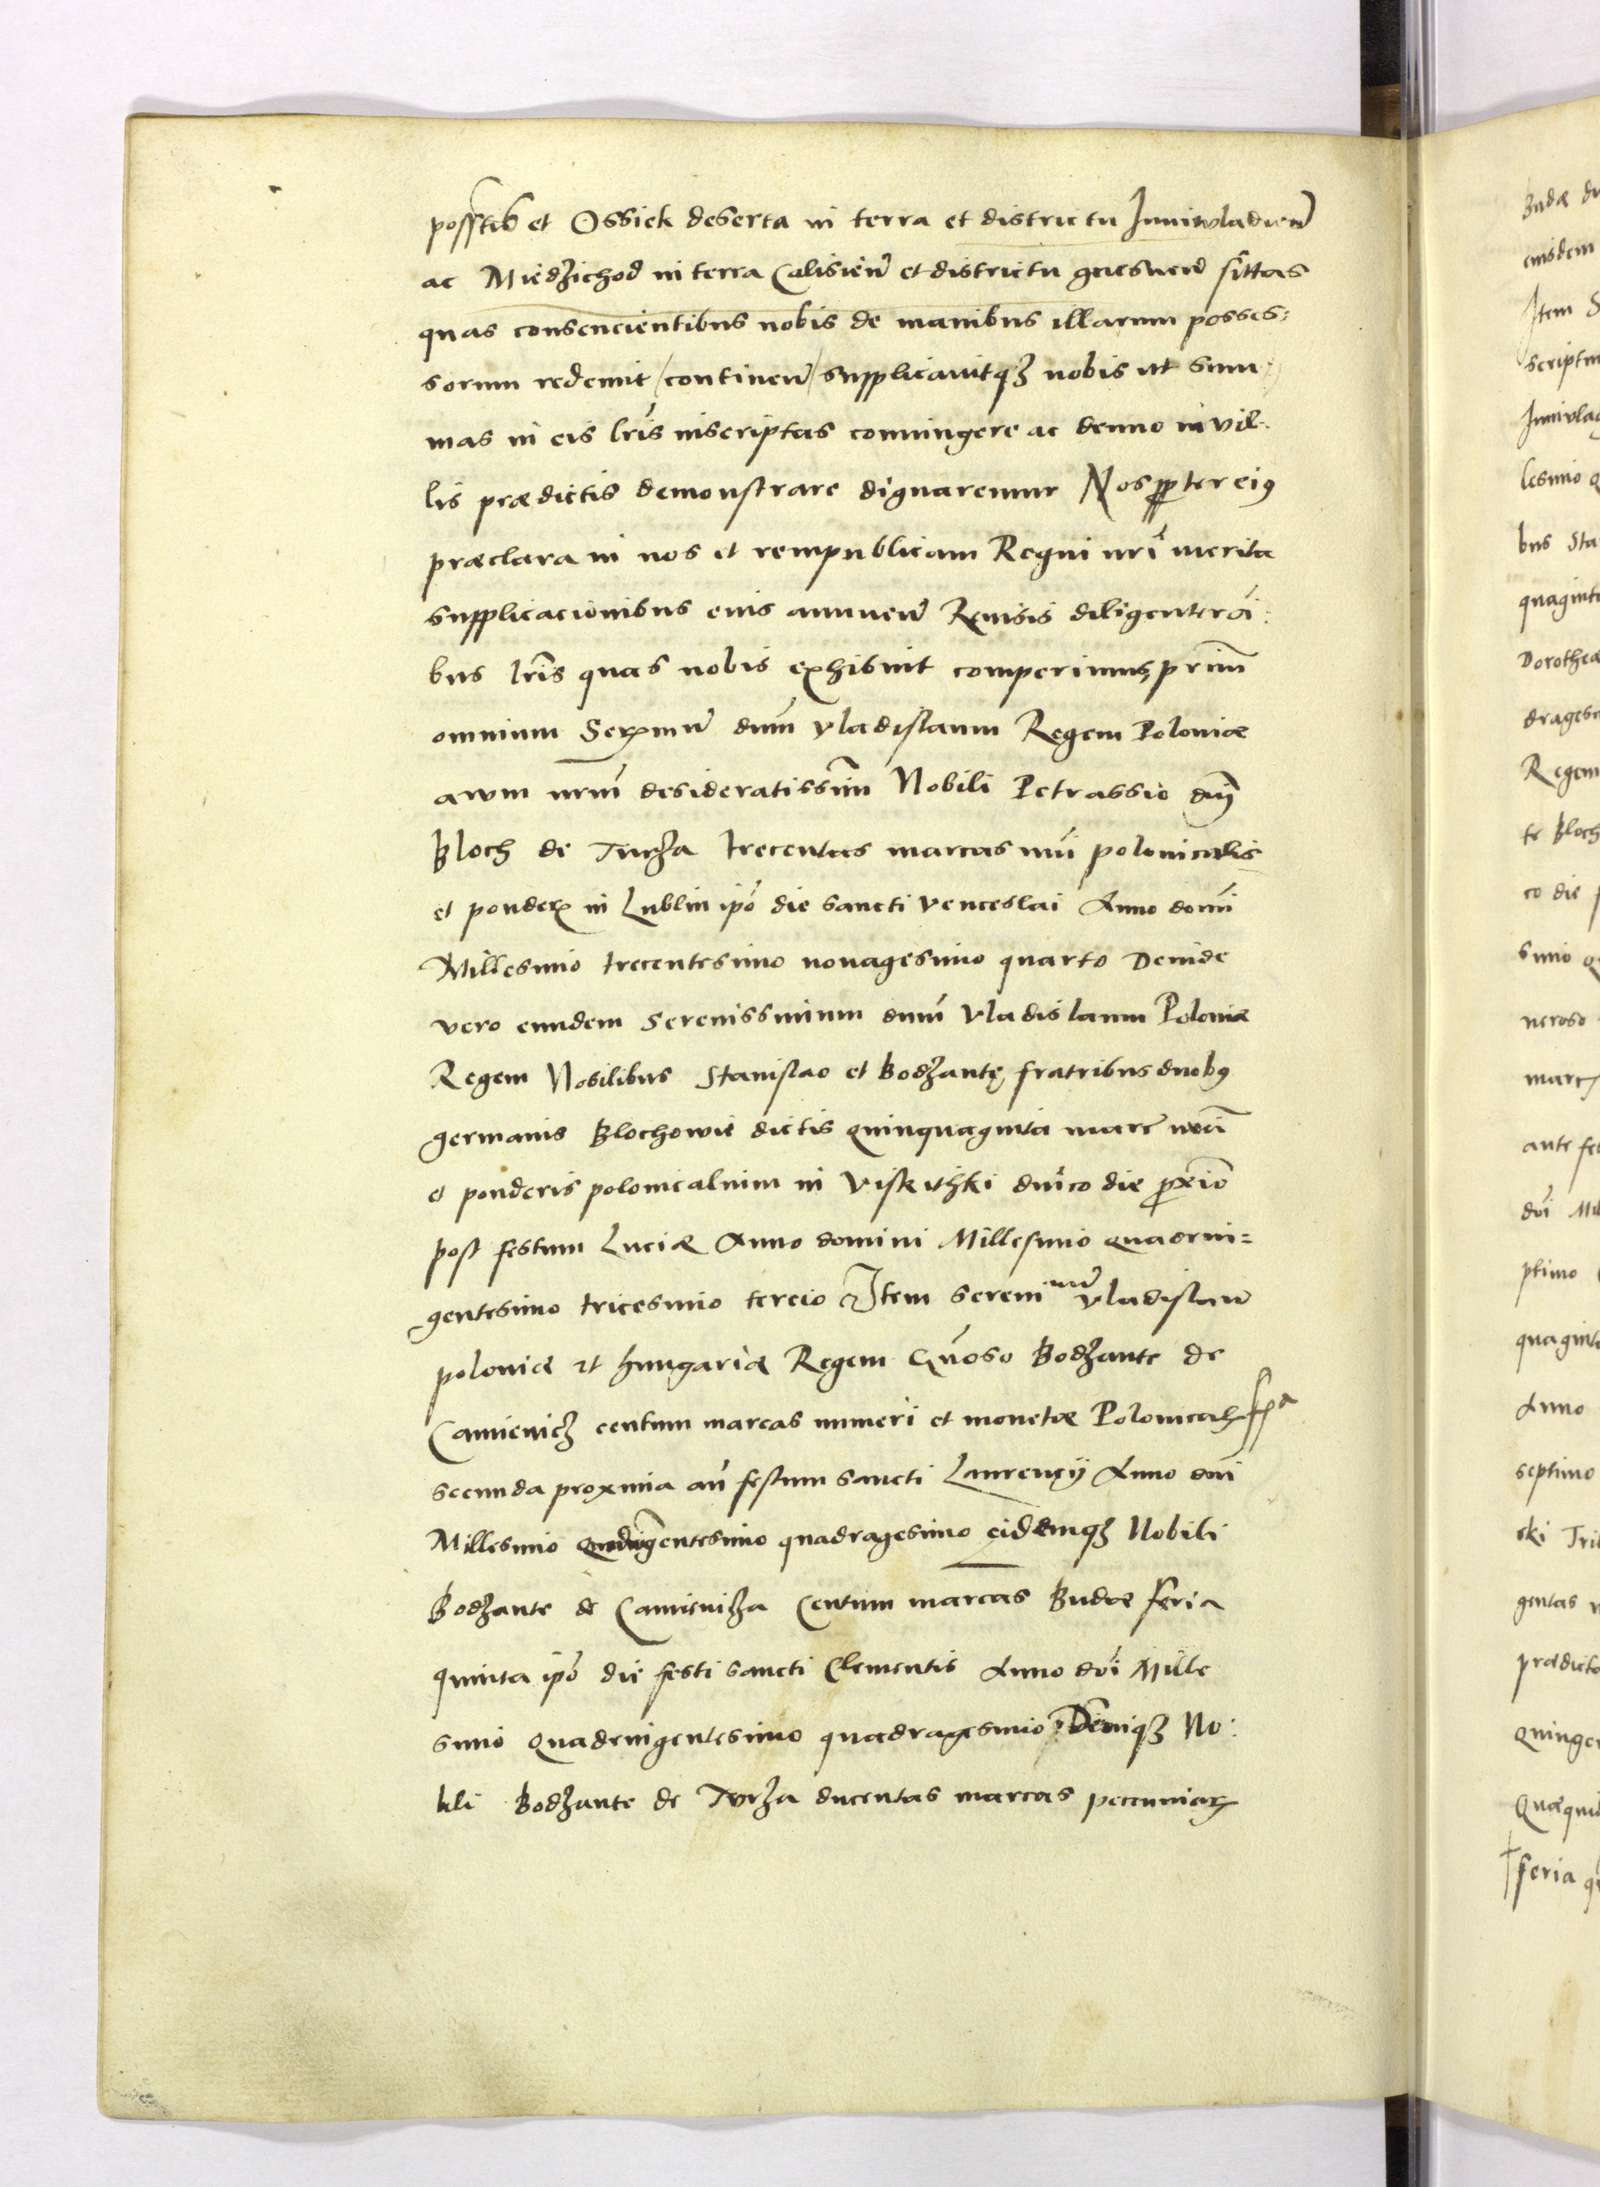 possrib et Ossiek deserta in terra et districtu Juniuladien
ac Miedzichod in terra Calisien et districtu gnesnen sittas
quas consencientibus nobis de manibus illarum posses:
sorum redemit continen supplicauitqz nobis ut sum
mas in eis lris inscriptas coniungere ac denuo in vil:
lis prædictis demonstrare dignaremur Nos propter eius
præclara in nos et rempublicam Regni nri merita
supplicacionibus euis annuen Reuisis diligenter oi:
bus lris quas nobis exhibuit comperimus primu
omnium Sermum dnm Vladislaum Regem Poloniæ
auum nrum desideratissim Nobili Petrassio dicto
Bloch de Turza trecentas marcas nui polonicalis
et ponder in Lublin ipo die sancti Venceslai Anno domi
Millesimo trecentesimo nonagesimo quarto Deinde
vero eundem Serenissimum dnm Vladislaum Poloniæ
Regem Nobilibus Stanislao et Bodzantę fratribus duobus
germanis Blochowie dictis quinquaginta marc
et ponderis polonicalium in Viskithki dnico die proxio
post festum Luciæ Anno domini Millesimo quadrin=
gentesimo tricesimo tercio Item serenimum Vladislaum
poloniæ et hungariæ Regem Gnoso Bodzante de
Camienicz centum marcas numeri et monetæ Polonical fra
secunda proxima an festum sancti Laurencij Anno dni
Millesimo quadringentesimo quadragesimo eidemqz Nobili
Bodzante de Camieniza Centum marcas Budæ feria
quinta ipo die festi sancti Clementis Anno doi Mille
simo quadringentesimo quadragesimo Deniqz No:
bili Bodzante de Turza ducentas marcas pecuniar